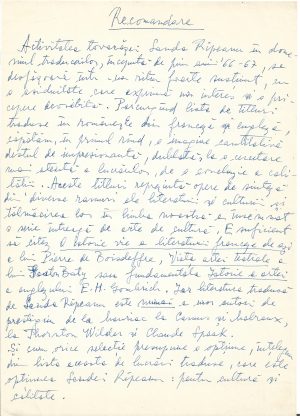 Recomandare
Activitatea tovarășei Sanda Rîpeanu în dome-
niul traducerilor, începută de prin anii '66-'67, se
desfășoară într-un ritm foarte susținut, cu
o asiduitate care exprimă un interes și o pri-
cepere deosebită. Parcurgînd lista de titluri
traduse în românește din franceză și engleză,
căpătăm, în primul rînd, o imagine cantitativă
destul de impresionantă, dublată, la o cercetare
mai atentă a lucrurilor, de o concluzie a cali-
tății. Aceste titluri reprezintă opere de sinteză
din diverse ramuri ale literaturii și culturii și
tălmăcirea lor în limba noastră a însemnat
o serie întreagă de acte de cultură. E suficient
să citez O istorie vie a literaturii franceze de azi
a lui Pierre de Boisdeffre, Viața artei teatrale a
lui Gaston Baty sau fundamentala Istorie a artei
a englezului E.H. Gombrich. Iar literatura tradusă
de Sanda Rîpeanu este a unor autori de
prestigiu de la Mauriac la Camus și Malraux,
la Thornton Wilder și Claude Spaak.
Și cum orice selecție presupune o opțiune, înțelegem
din lista aceasta de lucrări traduse, care este
opțiunea Sandei Rîpeanu: pentru cultură și
calitate.